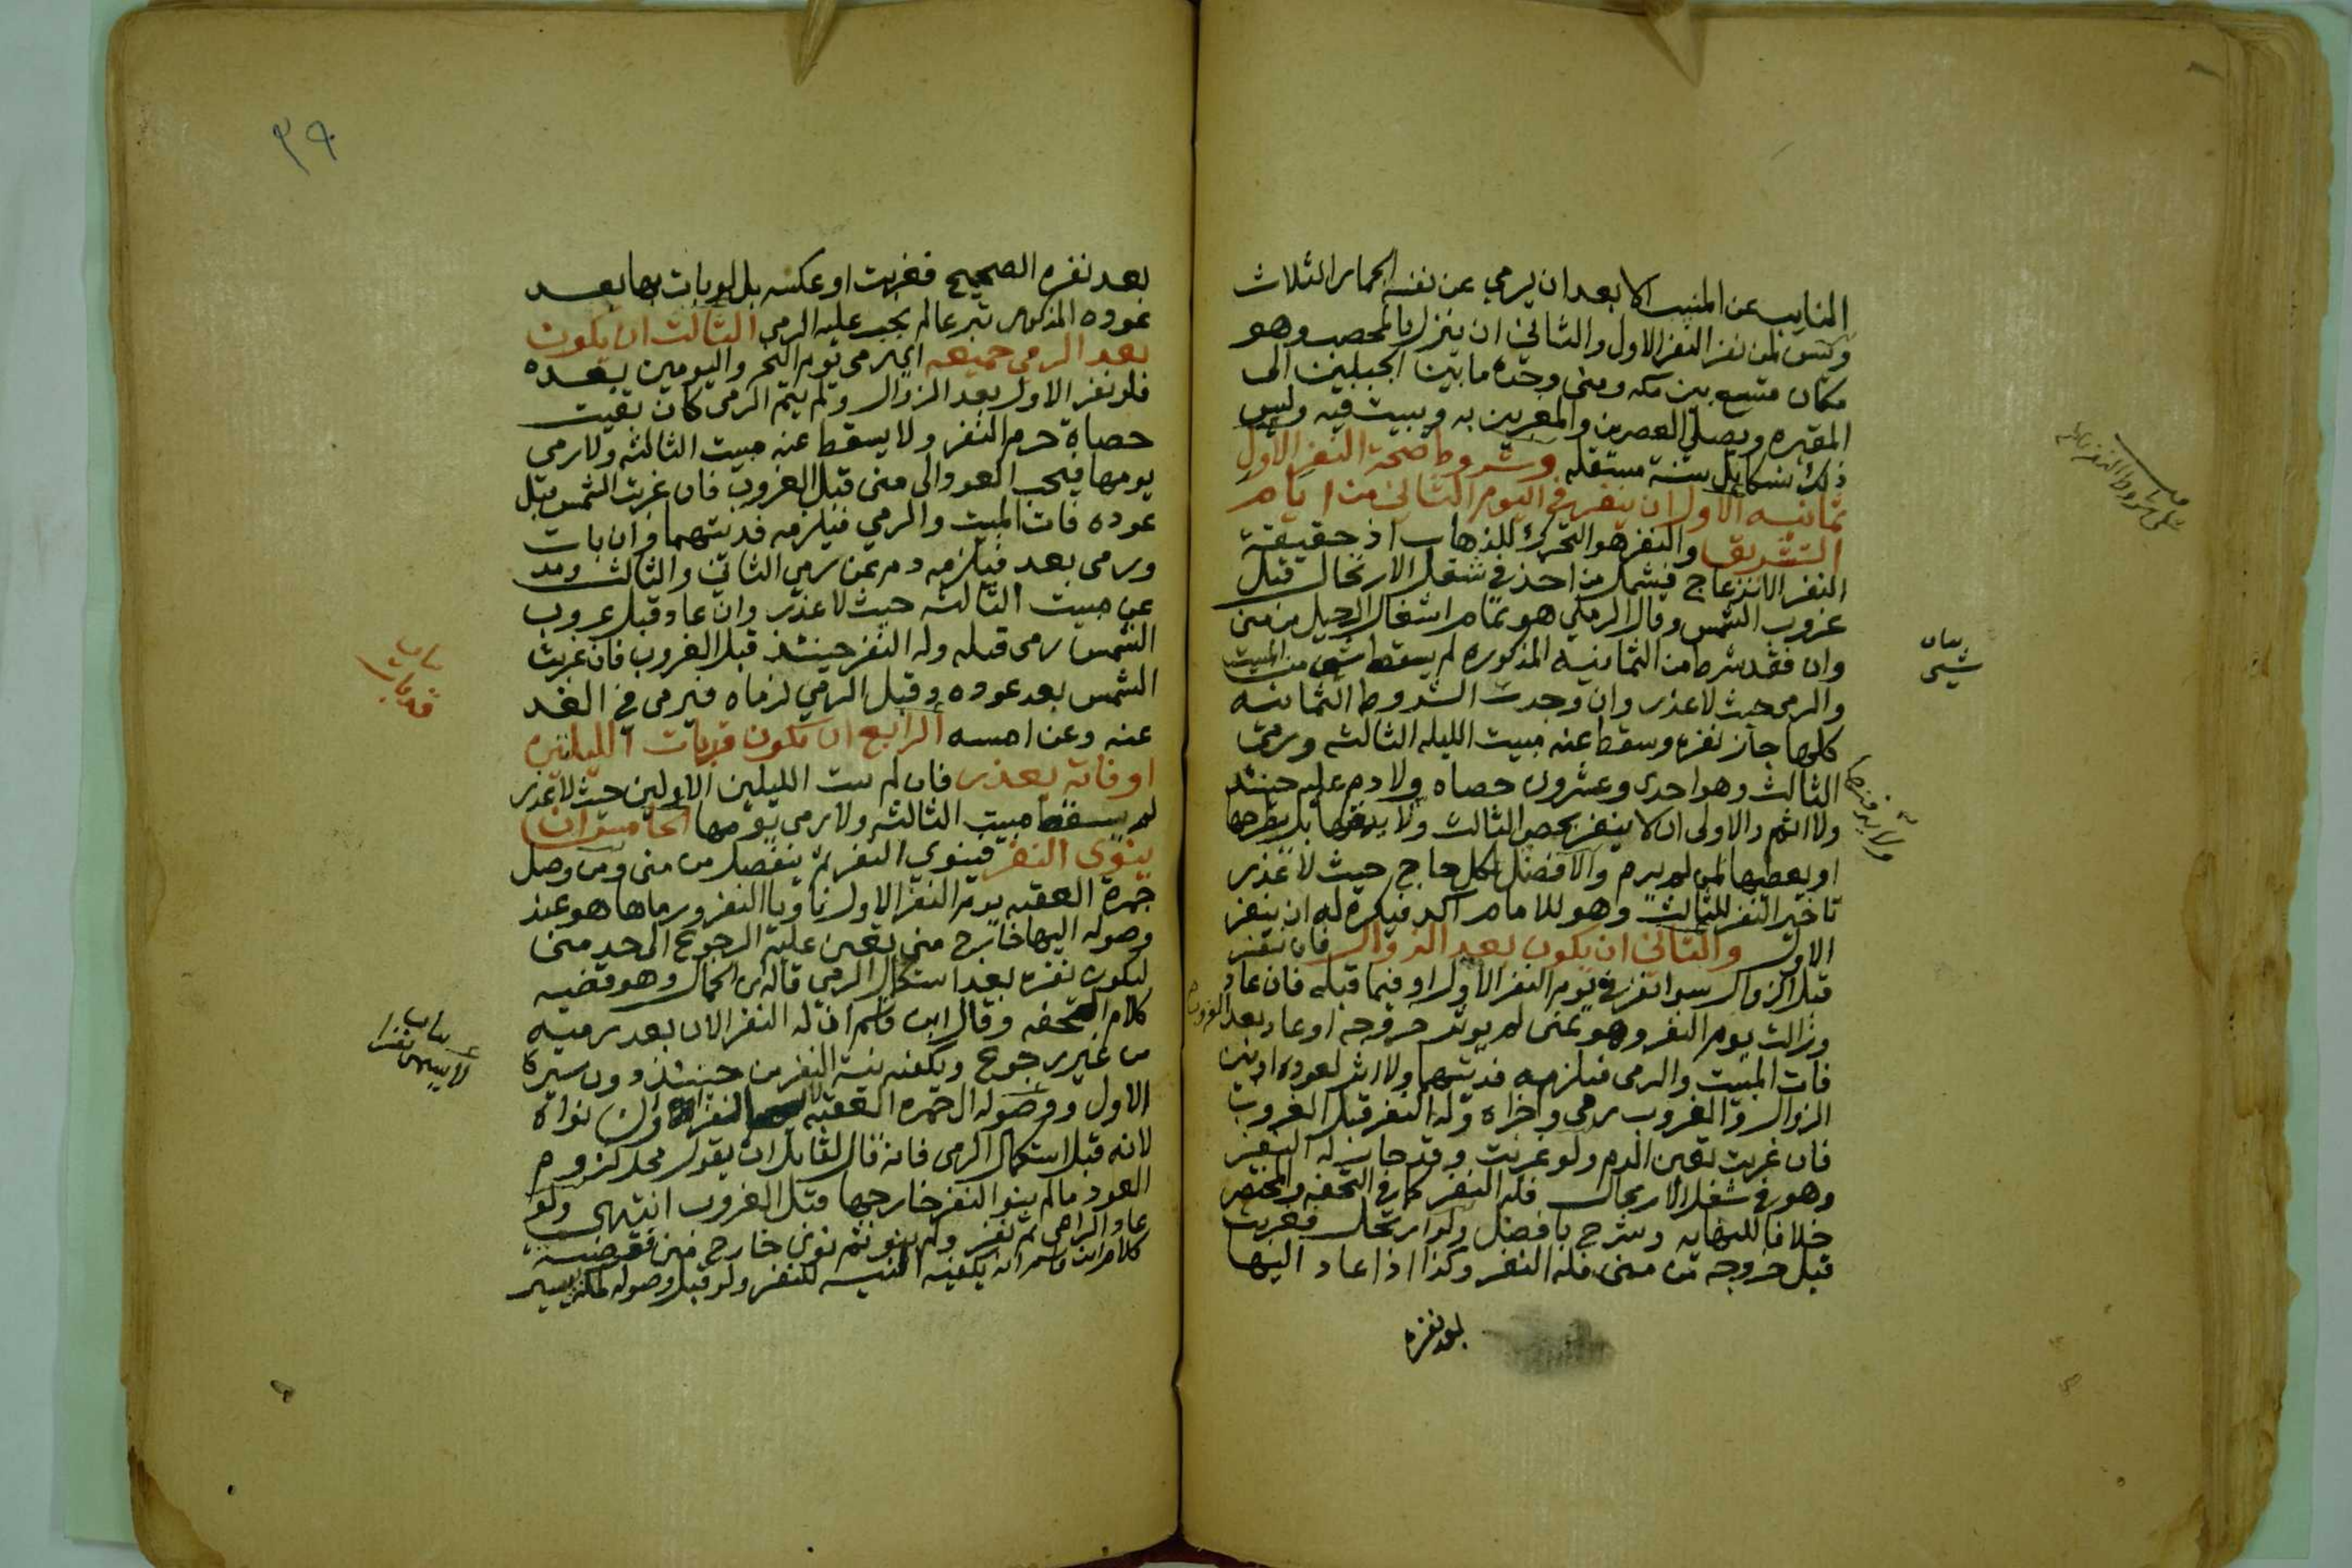 النايب عن المنيب الا بعد ان يرمي عن نفسه الجمار الثلاث
وليس لمن نفر النفر الاول والثاني ان ينزل بالمحصب وهو
مكان متسع بين مكه ومنى وحده ما بين الجبلين الى
المقبره ويصلي العصرين والمغربين به ويبيت فيه وليس
ذلك نسكا بل سنة مستقله وشروط صحة النفر الاول
ثمانيه الاول ان ينفر في اليوم الثاني من ايام
التشريق والنفر هو التحرك للذهاب اذ حقيقة
النفر الانزعاج فيشمل من اخذ في شغل الارتحال قبل
غروب الشمس وقال الرملي هو تمام اشغال الرحيل من منى
وان فقد شرط من الثمانيه المذكوره لم يسقط شي من المبيت
والرمي حيث لا عذر وان وجدت الشروط الثمانيه
كلها جاز نفره وسقط عنه مبيت الليله الثالثه ورمي
الثالث وهو احدى وعشرون حصاه ولا دم عليه حينئذ
ولا اثم والاولى ان لا ينفر بحصى الثالث ولا يدفنها بل يطرحها
او يعطيها لمن لم يرم والافضل لكل حاج حيث لا عذر
تاخير النفر للثالث وهو للامام آكد فيكره له ان ينفر
الاول والثاني ان يكون بعد الزوال فان نفر
قبل الزوال سوا نفر في يوم النفر الاول او فيما قبله فان عاد
وزالت يوم النفر وهو بمنى لم يوثر خروجه او عاد بعد الغروب
فات المبيت والرمي فيلزمه فديتهما ولا اثر لعوده او بين
الزوال والغروب رمى واجزاه وله النفر قبل الغروب
فان غربت تعين الدم ولو غربت وقد جاز له النفر
وهو في شغل الارتحال فله النفر كما في التحفه والمختصر
خلافا للنهايه وشرح بافضل ولو ارتحل فغربت
قبل خروجه من منى فله النفر وكذا اذا عاد اليها
بعد نفره
بيان
شي
بعد نفره الصحيح فغربت او عكسه بل لو بات بها بعد
عوده المذكور تبرعا لم يجب عليه الرمي الثالث ان يكون
بعد الرمي جميعه اي رمي يوم النحر واليومين بعده
فلو نفر الاول بعد الزوال ولم يتم الرمي كان بقيت
حصاة حرم النفر ولا يسقط عنه مبيت الثالثه ولا رمي
يومها فيجب العود الى منى قبل الغروب فان غربت الشمس قبل
عوده فات المبيت والرمي فيلزمه فديتهما وان بات
ورمى بعد فيلزمه دم عن رمي الثاني والثالث ومد
عن مبيت الثالثه حيث لا عذر وان عاد قبل غروب
الشمس رمى قبله وله النفر حينئذ قبل الغروب فان غربت
الشمس بعد عوده وقبل الرمي لزماه فيرمي في الغد
عنه وعن امسه الرابع ان يكون قد بات الليلتين
او فاته بعذر فان لم يبت الليلين الاولين حيث لا عذر
لم يسقط مبيت الثالثه ولا رمي يومها الخامس ان
ينوي النفر فينوي النفر ثم ينفصل من منى ومن وصل
جمرة العقبه يوم النفر الاول ناويا النفر ورماها هو عند
وصوله اليها خارج منى تعين عليه الرجوع الى حد منى
ليكون نفره بعد استكمال الرمي قاله ابن الجمال وهو قضيه
كلام التحفه وقال ابن قاسم ان له النفر الان بعد رميه
من غير رجوع ويكفيه نية النفر من حينئذ دون سيره
الاول ووصوله الى جمره العقبه لا النفر وان نواه
لانه قبل استكمال الرمي فانه قال لقايل ان يقول محل لزوم
العود ما لم ينو النفر خارجها قبل الغروب انتهى ولو
عاد الرامي ثم نفر ولم ينو ثم نوى خارج منى فقضيه
كلام ابن قاسم انه يكفيه النيه للنفر ولو قبل وصوله لمكه بيسير
٣٩
بيان